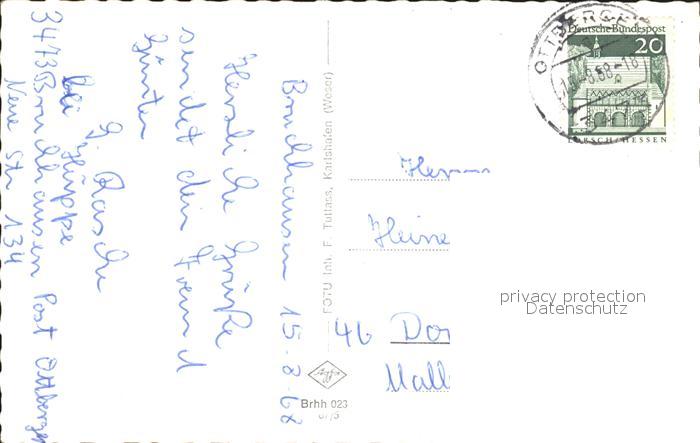 Bruchhausen 15-8-68
Herzliche Grüße
sendet dein Freund
Günter
G. Rasche
bei Hüppe
3473 Bruchhausen Post Ottbergen
Neue Str 134
FOTO Inh. F. Tuttass, Karlshafen (Weser)
Agfa
Brhh 023
OTTBERGEN
Deutsche Bundespost
20
LORSCH/HESSEN
Herrn
Heine
46 Dor
Mall
privacy protection
Datenschutz